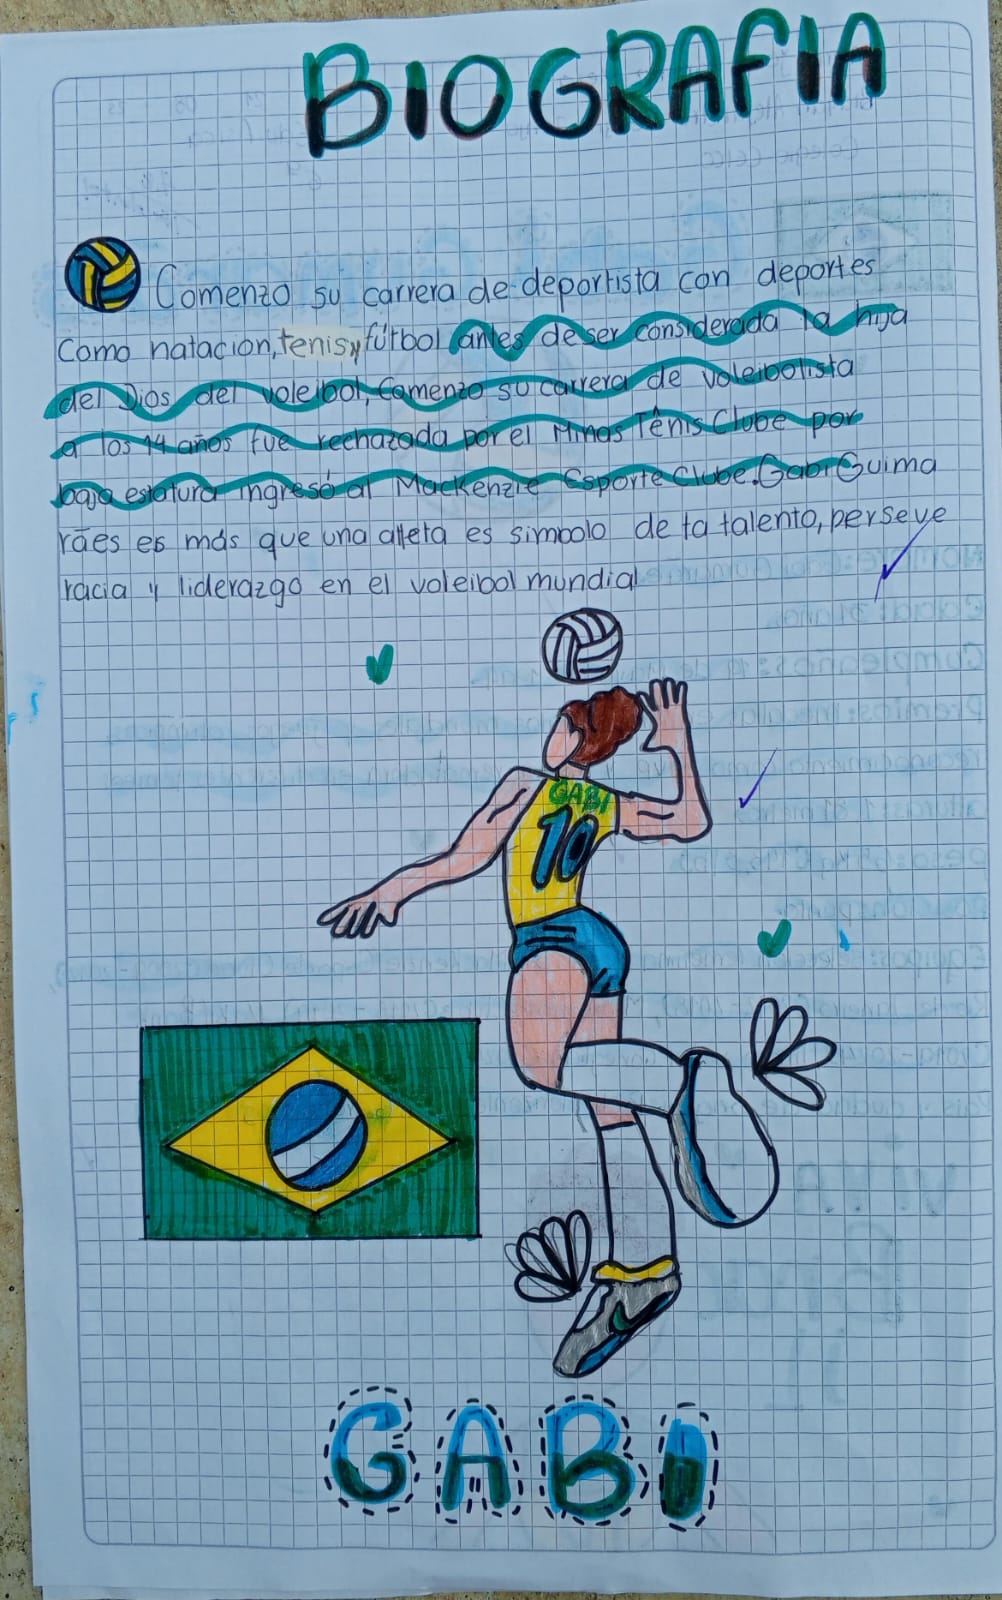 BIOGRAFIA
Comenzo su carrera de deportista con deportes
como natacion, tenis y fútbol antes de ser considerada la hija
del Dios del voleibol, Comenzo su carrera de voleibolista
a los 14 años fue rechazada por el Minas Tênis Clube por
baja estatura ingresó al Mackenzie Esporte Clube. Gabi Guima
rães es más que una atleta es simbolo de ta talento, perseve
racia y liderazgo en el voleibol mundial
GABI
10
GABI